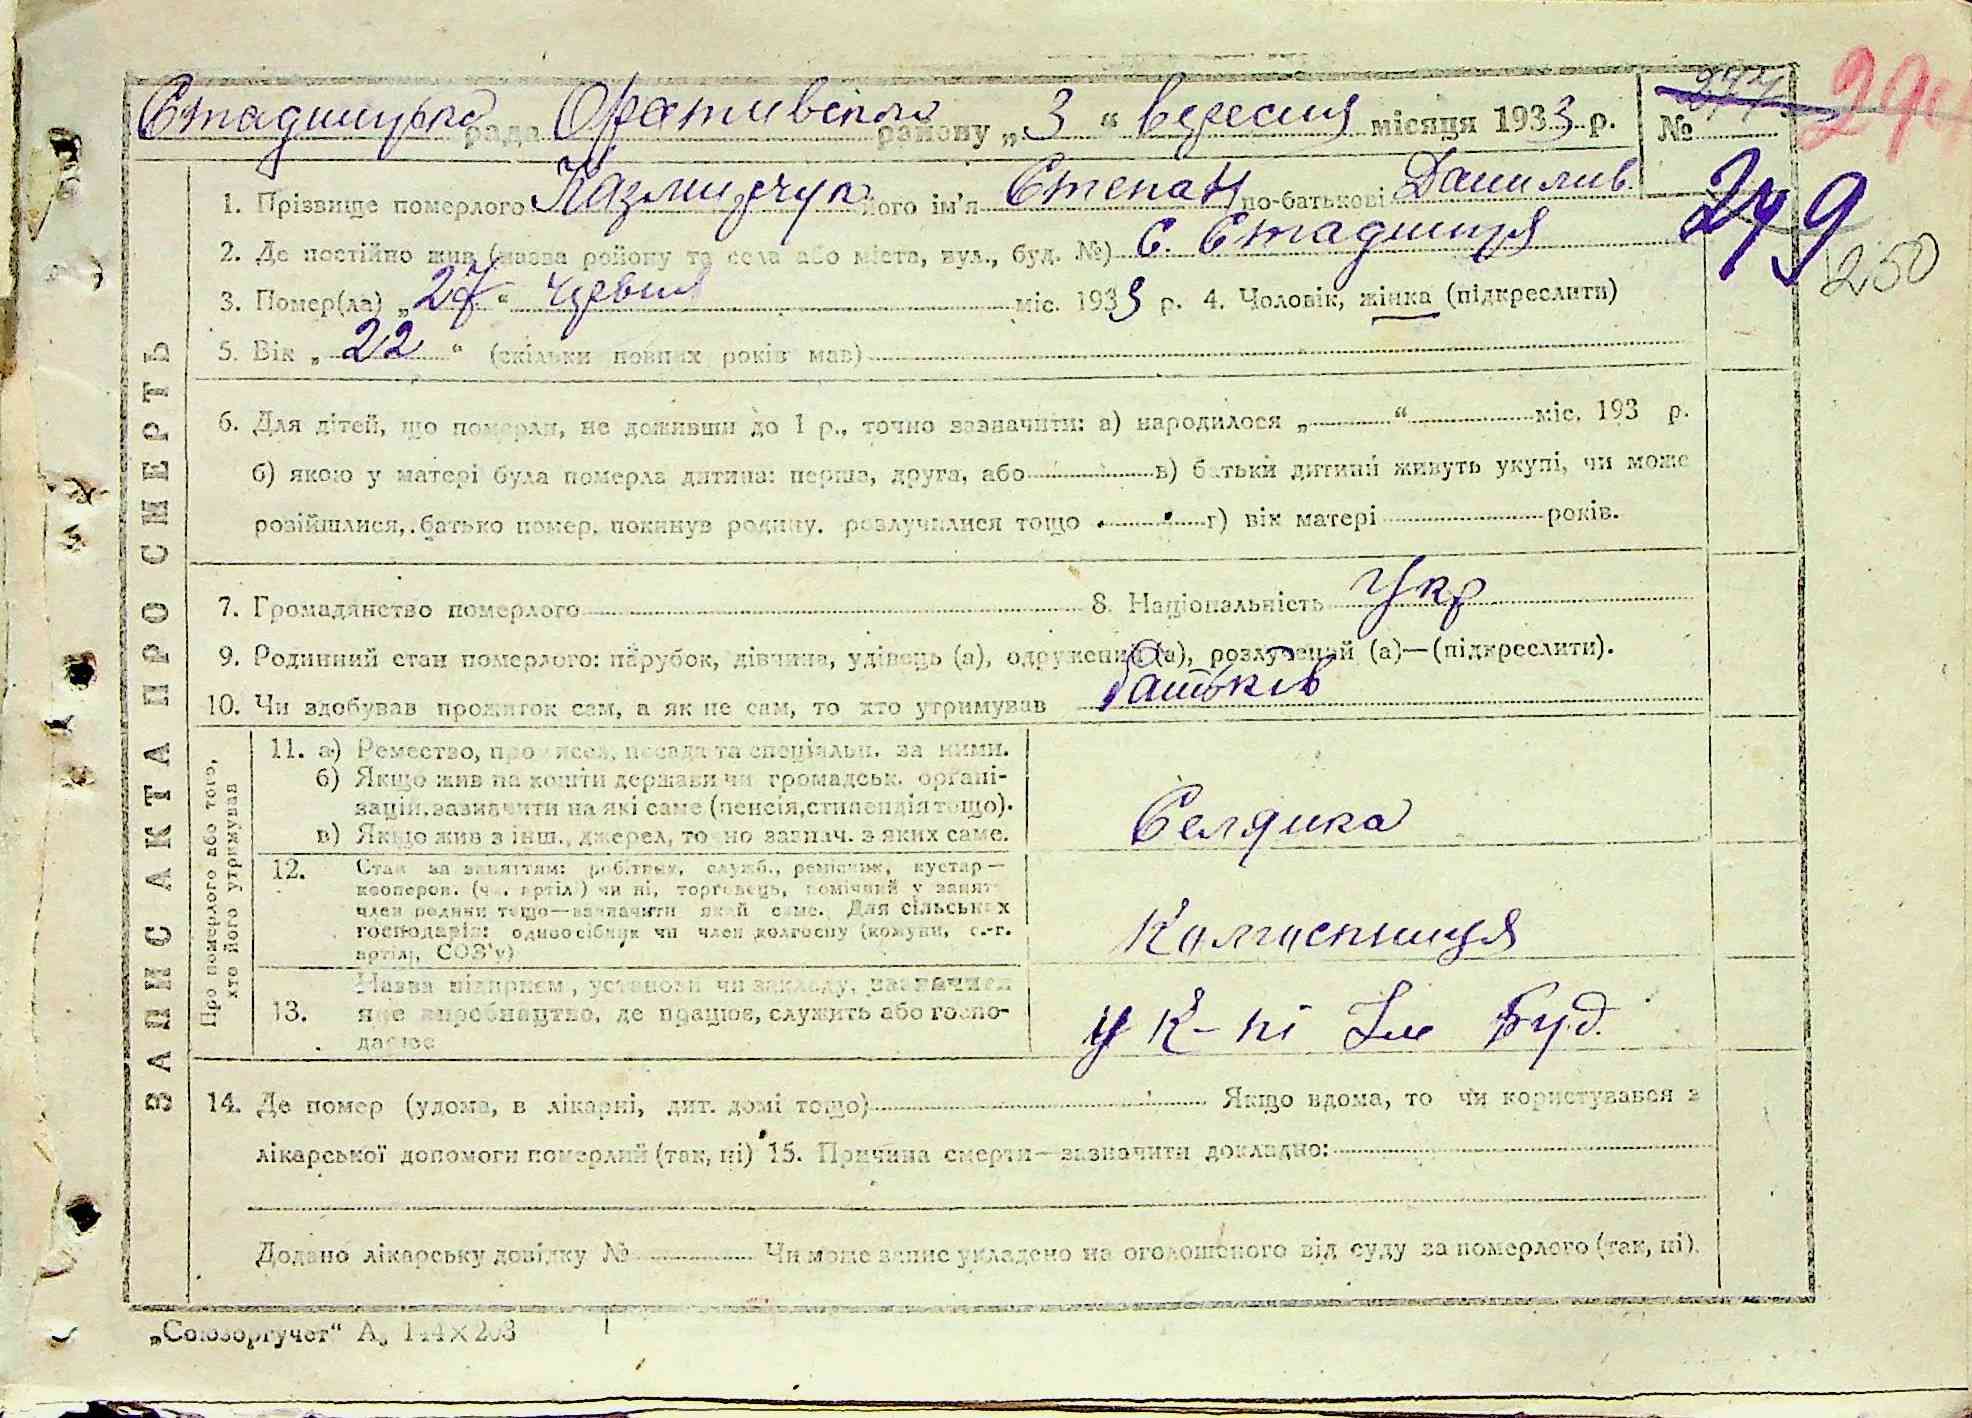 Стадницька рада Оратівського району „3“ вересня місяця 1933 р. №
277
290
279
250
1. Прізвище померлого Казмирчук його ім'я Степан по-батькові Данилив.
2. Де постійно жив (назва району та села або міста, вул., буд. №) С. Стадниця
3. Помер(ла) „27“ червня міс. 1933 р. 4. Чоловік, жінка (підкреслити)
5. Вік „22“ (скільки повних років мав)
6. Для дітей, що померли, не доживши до 1 р., точно зазначити: а) народилося „ “ міс. 193 р.
б) якою у матері була померла дитина: перша, друга, або в) батьки дитини живуть укупі, чи може
розійшлися, батько помер, покинув родину, розлучилися тощо г) вік матері років.
7. Громадянство померлого 8. Національність Укр
9. Родинний стан померлого: парубок, дівчина, удівець (а), одружений (а), розлучений (а)—(підкреслити).
10. Чи здобував прожиток сам, а як не сам, то хто утримував батьків
ЗАПИС АКТА ПРО СМЕРТЬ
Про померлого або того, хто його утримував
11. а) Ремество, професія, посада та спеціальн. за ними.
б) Якщо жив на кошти держави чи громадськ. організацій, зазначити на які саме (пенсія, стипендія тощо).
в) Якщо жив з інш., джерел, точно зазнач. з яких саме.
Селянка
12. Стан за заняттям: робітник, служб., ремісник, кустар—
кооперов. (чл. артілі) чи ні, торговець, помічний у занят.
член родини тощо—зазначити який саме. Для сільських
господарів: одноосібник чи член колгоспу (комуни, с.-г.
артілі, СОЗ'у)
Колгоспниця
13. Назва підприєм., установи чи закладу, зазначити
яке виробництво, де працює, служить або господарює
у К-пі Ім Буд.
14. Де помер (удома, в лікарні, дит. домі тощо) Якщо вдома, то чи користувався з
лікарської допомоги померлий (так, ні) 15. Причина смерти—зазначити докладно:
Додано лікарську довідку № Чи може запис укладено на оголошеного від суду за померлого (так, ні).
„Союзоргучет“ А₅ 144×203